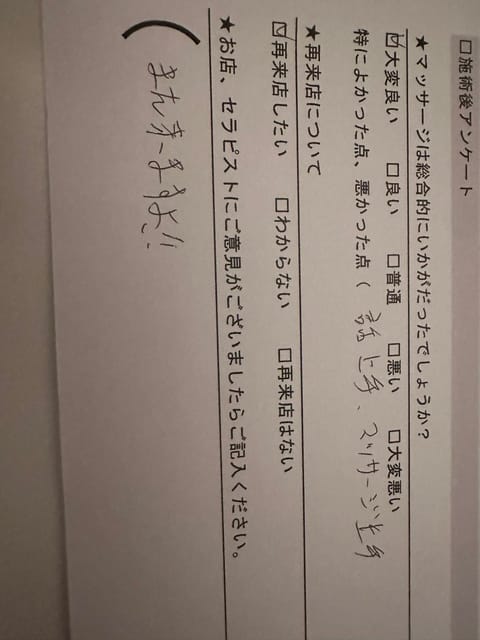 □施術後アンケート
★マッサージは総合的にいかがだったでしょうか?
☑大変良い □良い □普通 □悪い □大変悪い
特によかった点、悪かった点( 話上手、マッサージ上手
★再来店について
☑再来店したい □わからない □再来店はない
★お店、セラピストにご意見がございましたらご記入ください。
(
またきますよ!!